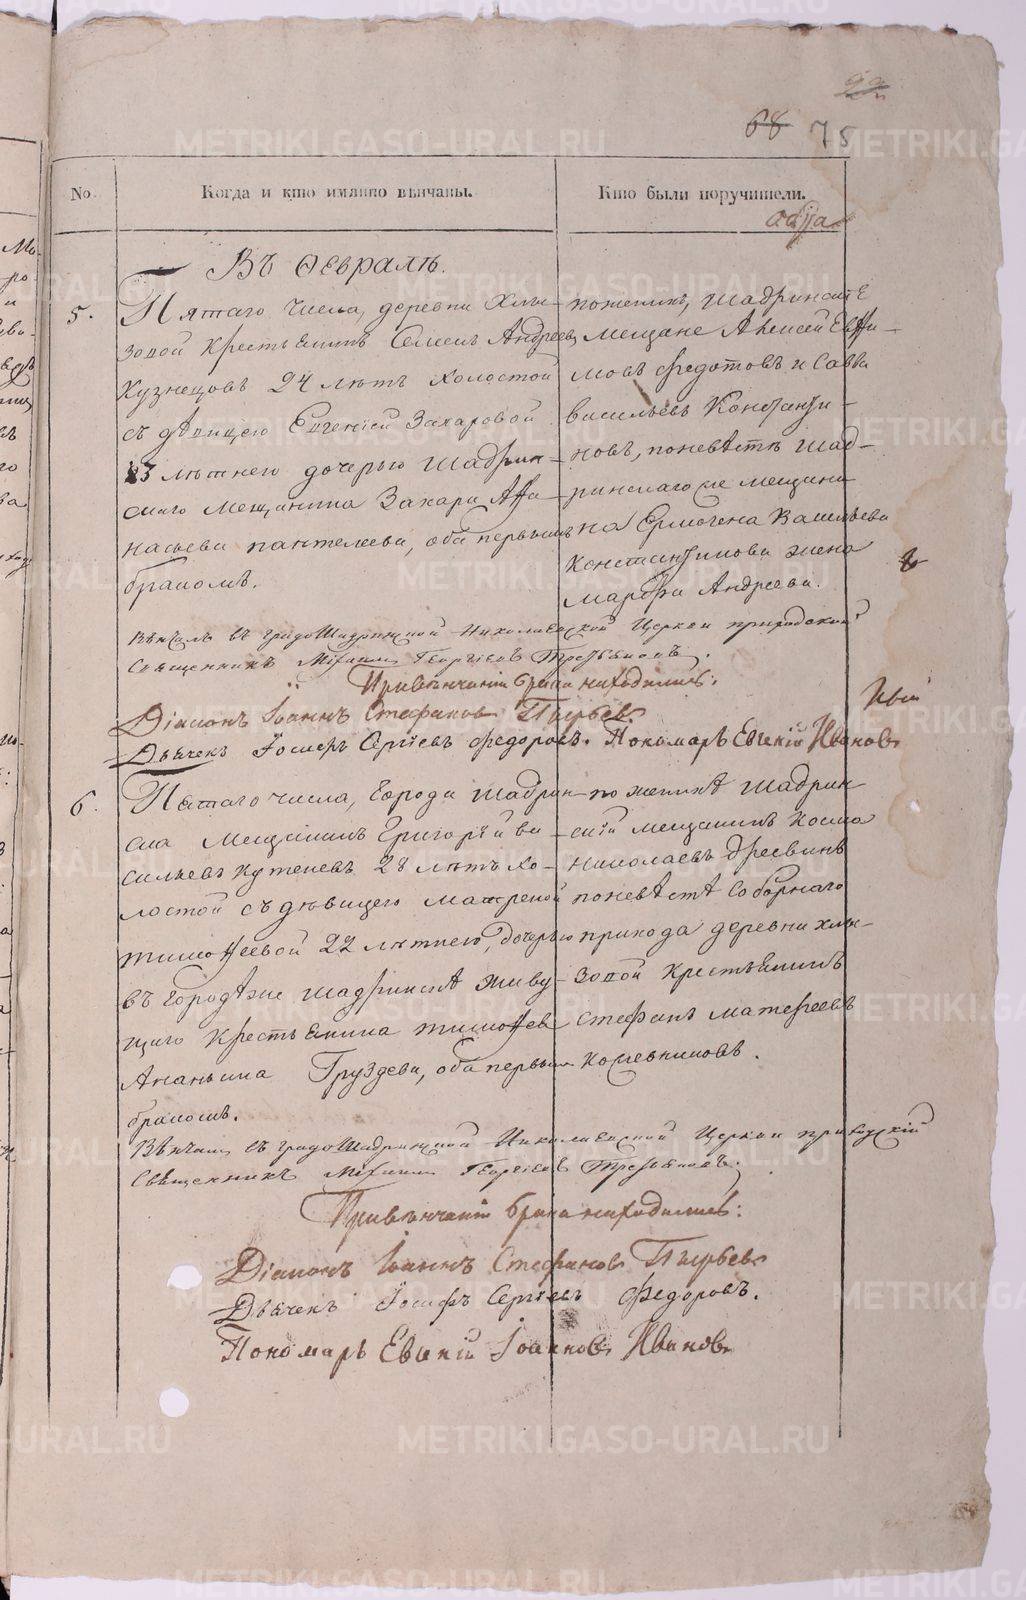 68 78
No. Когда и кто имянно вѣнчаны. Кто были поручители.
Въ Февралѣ.
5. Пятаго числа, деревни Хлы-
зовой крестьянинъ Семенъ Андреевъ
Кузнецовъ 24 лѣтъ холостой
съ дѣвицею Евгеніей Захаровой
23 лѣтнею дочерью Шадрин-
скаго мещанина Захара Афа-
насьева Пантелеева, оба первымъ
бракомъ.
по женихѣ, Шадринскіе
мещане Алексей Евфи-
мовъ Федотовъ и Савва
Васильевъ Константи-
новъ, по невѣстѣ Шад-
ринскаго же мещани-
на Ермогена Васильева
Константинова жена
Марфа Андреева.
Вѣнчалъ въ градоШадринской Николаевской Церкви приходской
Священникъ Михаилъ Георгіевъ Третьяковъ.
При вѣнчаніи брака находились:
Діаконъ Іоаннъ Стефановъ
Дьячекъ Іосифъ Сергіевъ Федоровъ. Пономарь Евгеній Ивановъ
6. Пятаго числа, города Шадрин-
ска мещанинъ Григорій Ва-
сильевъ Кутеневъ 28 лѣтъ хо-
лостой съ дѣвицею Матреной
Тимофеевой 22 лѣтнею, дочерью
въ городѣ же Шадринскѣ живу-
щаго крестьянина Тимофея
Ананьина Груздева, оба первымъ
бракомъ.
по женихѣ Шадрин-
скій мещанинъ Косма
Николаевъ Дресвинъ
по невѣстѣ Соборнаго
прихода деревни Хлы-
зовой крестьянинъ
Стефанъ Матфеевъ
Кожевниковъ.
Вѣнчалъ въ градоШадринской Николаевской Церкви приходскій
Священникъ Михаилъ Георгіевъ Третьяковъ.
При вѣнчаніи брака находились:
Діаконъ Іоаннъ Стефановъ
Дьячекъ Іосифъ Сергіевъ Федоровъ.
Пономарь Евгеній Іоанновъ Ивановъ
METRIKI.GASO-URAL.RU